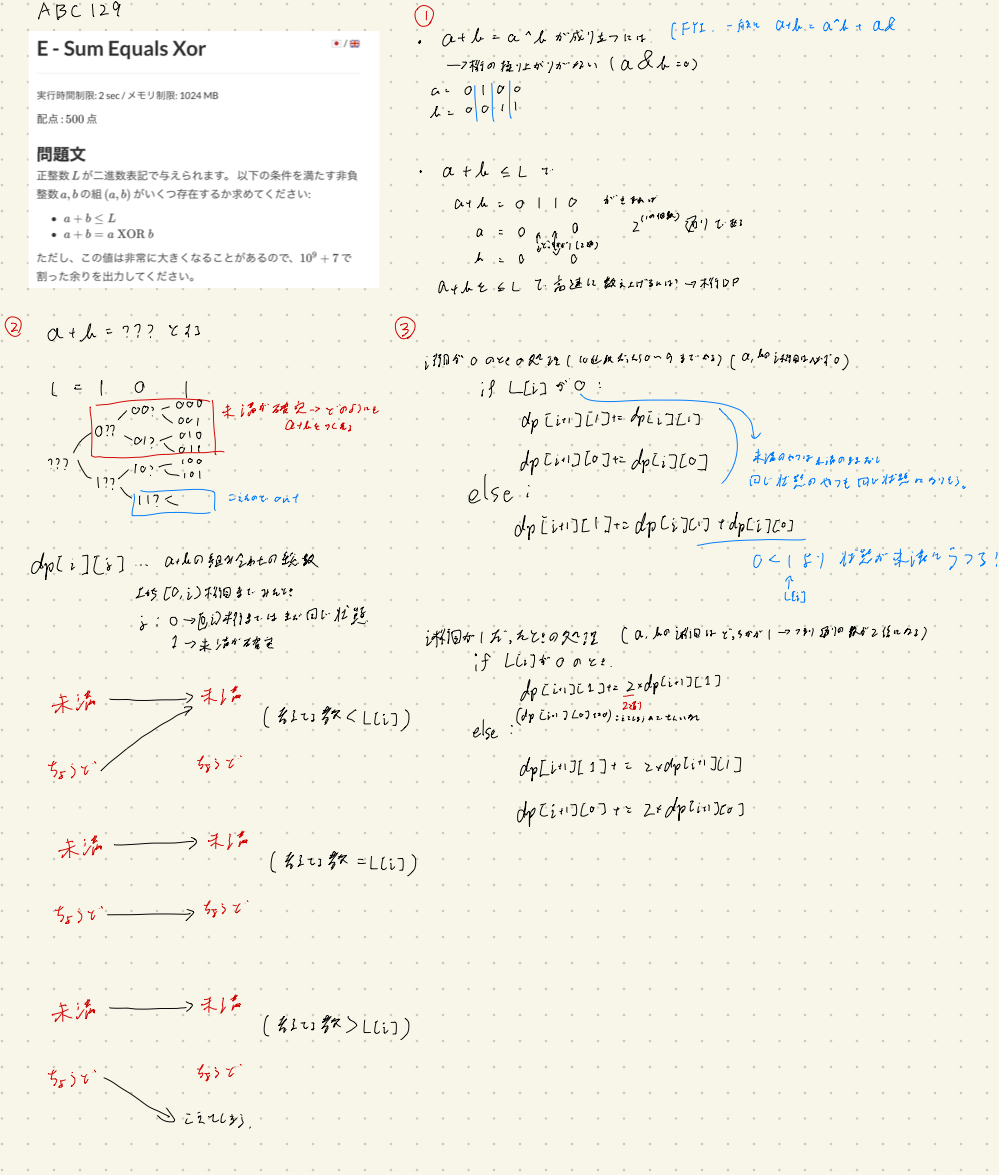 ABC 129
E - Sum Equals Xor
実行時間制限: 2 sec / メモリ制限: 1024 MB
配点 : 500 点
問題文
正整数 L が二進数表記で与えられます。 以下の条件を満たす非負
整数 a, b の組 (a, b) がいくつ存在するか求めてください:
• a + b ≤ L
• a + b = a XOR b
ただし、この値は非常に大きくなることがあるので、10^9 + 7 で
割った余りを出力してください。
①
・ a+b = a^b が成り立つには (FYI. 一般に a+b = a^b +
→桁の繰り上がりがない (a & b = 0)
a = 0 1 0 0
b = 0 0 1 1
・ a+b ≤ L で
a+b = 0 1 1 0 ができれば
a = 0 0
b = 0 0
2^(1の個数) 通りできる
a+bを ≤ L で高速に数え上げるには? → 桁DP
②
a+b = ??? とする
L = 1 0 1
???
0??
1??
00?
01?
10?
11? <
000
001
010
011
100
101
未満が確定→どのようにも
a+bをつくれる
out
dp[i][j] … a+bの組み合わせの総数
i : [0, i)桁目までみたとき
j : 0 → まだ同じ状態
1 → 未満が確定
未満 → 未満
(数 < L[i])
ちょうど ちょうど
未満 → 未満
(数 = L[i])
ちょうど → ちょうど
未満 → 未満
(数 > L[i])
ちょうど ちょうど
こえてしまう.
③
i桁目が 0 のときの処理
if L[i] が 0 :
dp[i+1][1] += dp[i][1]
dp[i+1][0] += dp[i][0]
未満のやつは未満のままだし
同じ状態のやつも同じ状態になりそう。
else :
dp[i+1][1] += dp[i][1] + dp[i][0]
0 < 1 より 状態が未満にうつる!
L[i]
i桁目が 1 だったときの処理 (a, bのi桁目はどっちかが1 → つまり通りの数が2倍になる)
if L[i] が 0 のとき.
dp[i+1][1] += 2*dp[i+1][1]
2通り
else :
dp[i+1][1] += 2*dp[i+1][1]
dp[i+1][0] += 2*dp[i+1][0]